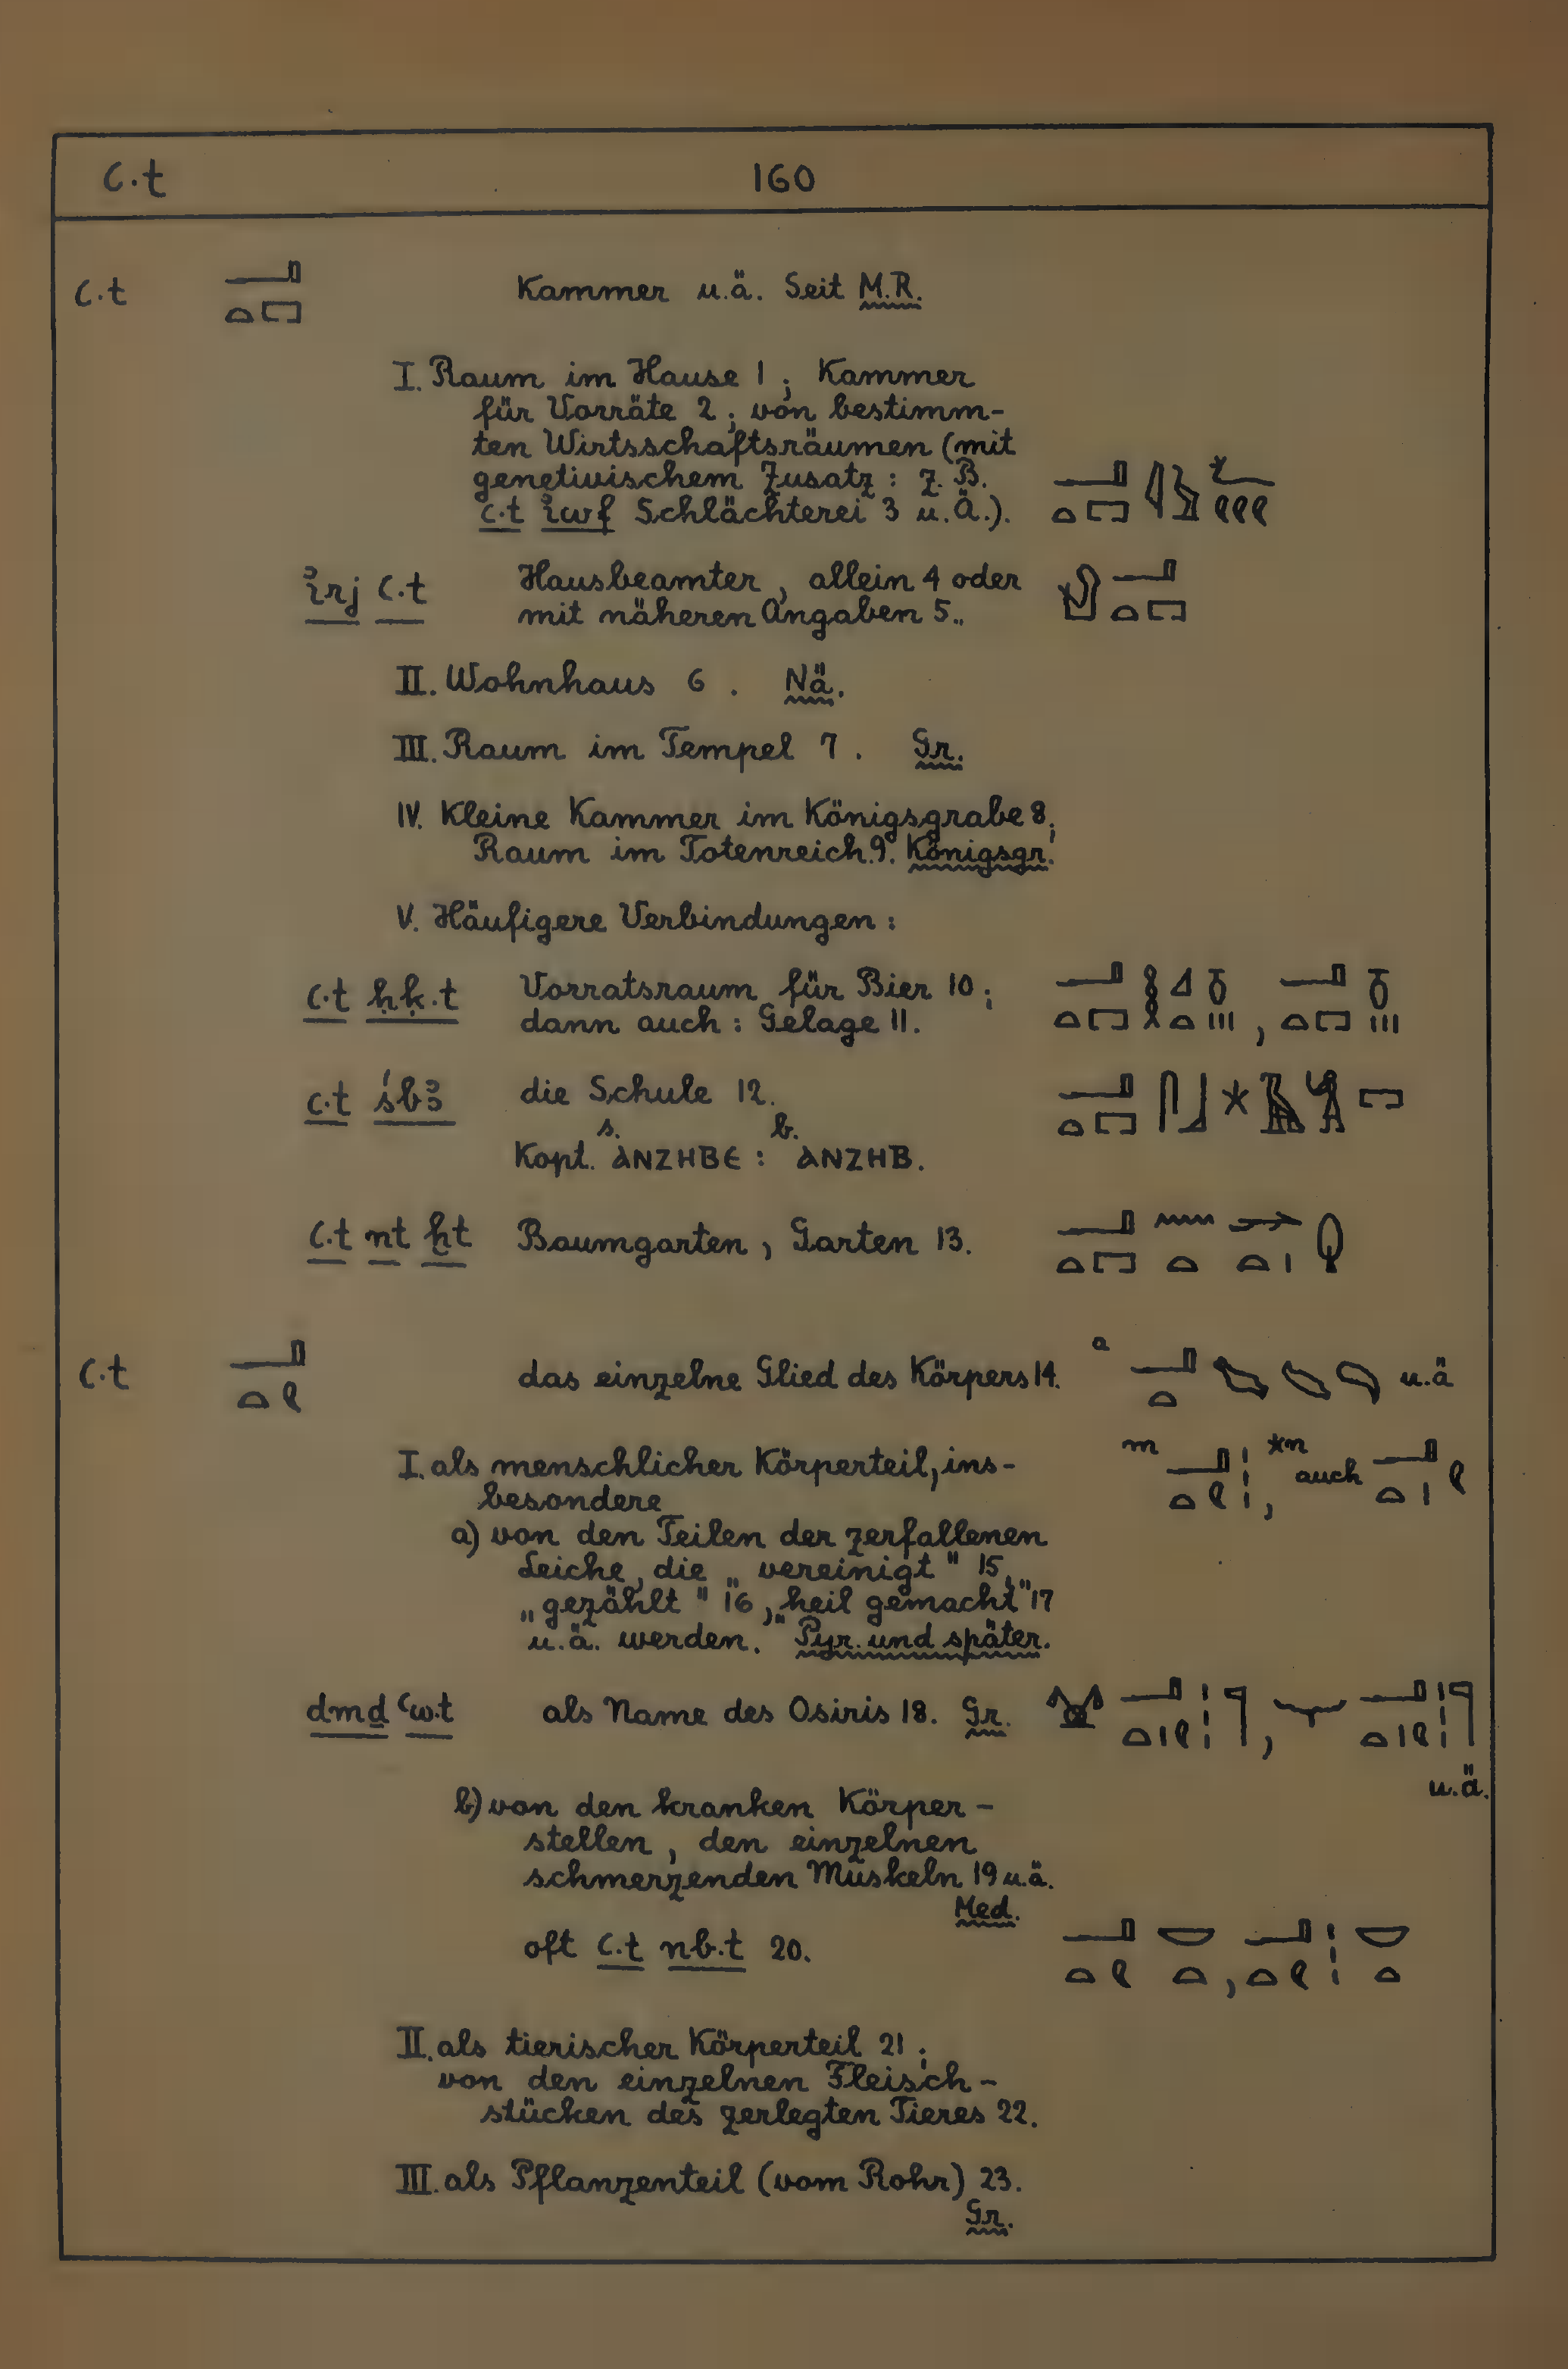 ꜥ.t 160
ꜥ.t 𓂝𓏏𓉐 Kammer u.ä. Seit M.R.
I. Raum im Hause 1; Kammer
für Vorräte 2; von bestimm-
ten Wirtsschaftsräumen (mit
genetivischem Zusatz: z.B.
ꜥ.t i͗wf Schlächterei 3 u.Ä.).
i͗rj ꜥ.t Hausbeamter, allein 4 oder
mit näheren Angaben 5..
II. Wohnhaus 6. Nä.
III. Raum im Tempel 7. Gr.
IV. Kleine Kammer im Königsgrabe 8;
Raum im Totenreich.9. Königsgr.
V. Häufigere Verbindungen:
ꜥ.t ḥḳ.t Vorratsraum für Bier 10;
dann auch: Gelage 11.
ꜥ.t śbꜣ die Schule 12.
s. b.
Kopt. ⲁⲛⲍⲏⲃⲉ : ⲁⲛⲍⲏⲃ.
ꜥ.t nt ḫt Baumgarten, Garten 13.
ꜥ.t 𓂝𓏏𓄹 das einzelne Glied des Körpers 14. a u.ä
I. als menschlicher Körperteil, ins- m , *n auch
besondere
a) von den Teilen der zerfallenen
Leiche, die „vereinigt" 15,
„gezählt" 16, „heil gemacht" 17
u.ä. werden. Pyr. und später.
dmḏ ꜥw.t als Name des Osiris 18. Gr.
u.ä.
b) von den kranken Körper-
stellen, den einzelnen
schmerzenden Muskeln 19 u.ä.
Med.
oft ꜥ.t nb.t 20.
II. als tierischer Körperteil 21;
von den einzelnen Fleisch-
stücken des zerlegten Tieres 22.
III. als Pflanzenteil (vom Rohr) 23.
Gr.